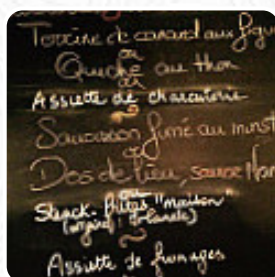 Terrine de canard aux figu
ou
Quiche au thon
ou
Assiette de charcuterie
Saucisson fumé au munst
ou
Dos de lieu, sauce
ou
Steack. frites "maison"
Assiette de fromages